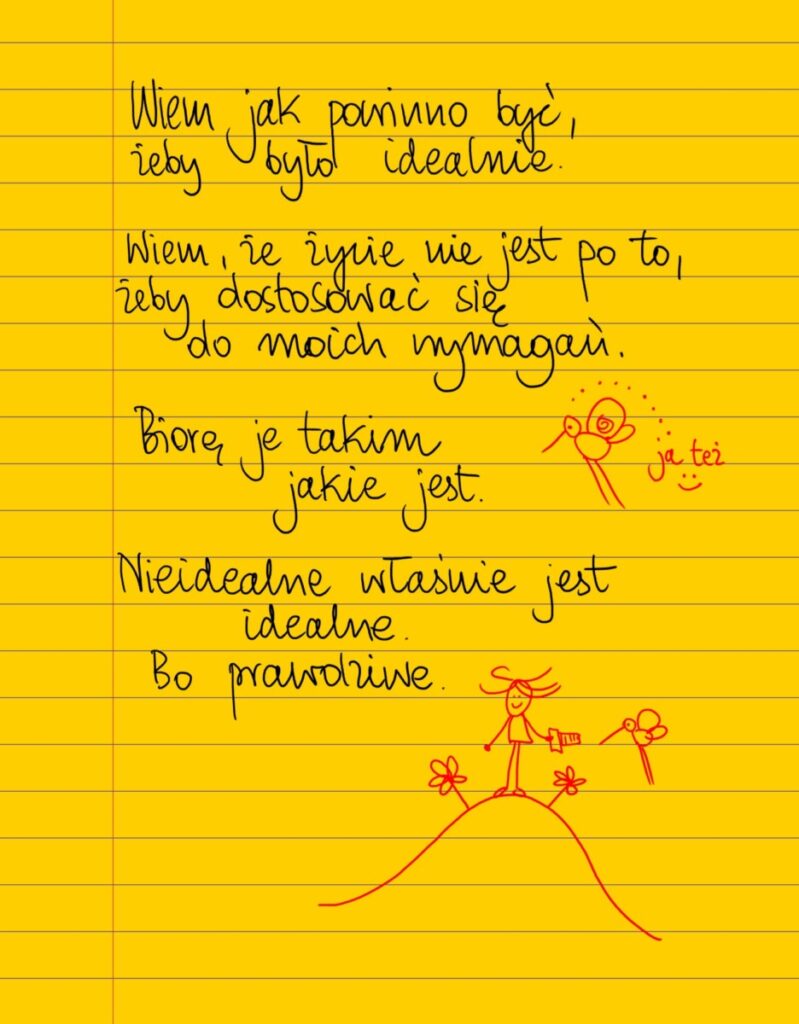 Wiem jak powinno być,
żeby było idealnie.
Wiem, że życie nie jest po to,
żeby dostosować się
do moich wymagań.
Biorę je takim
jakie jest.
ja też
Nieidealne właśnie jest
idealne.
Bo prawdziwe.